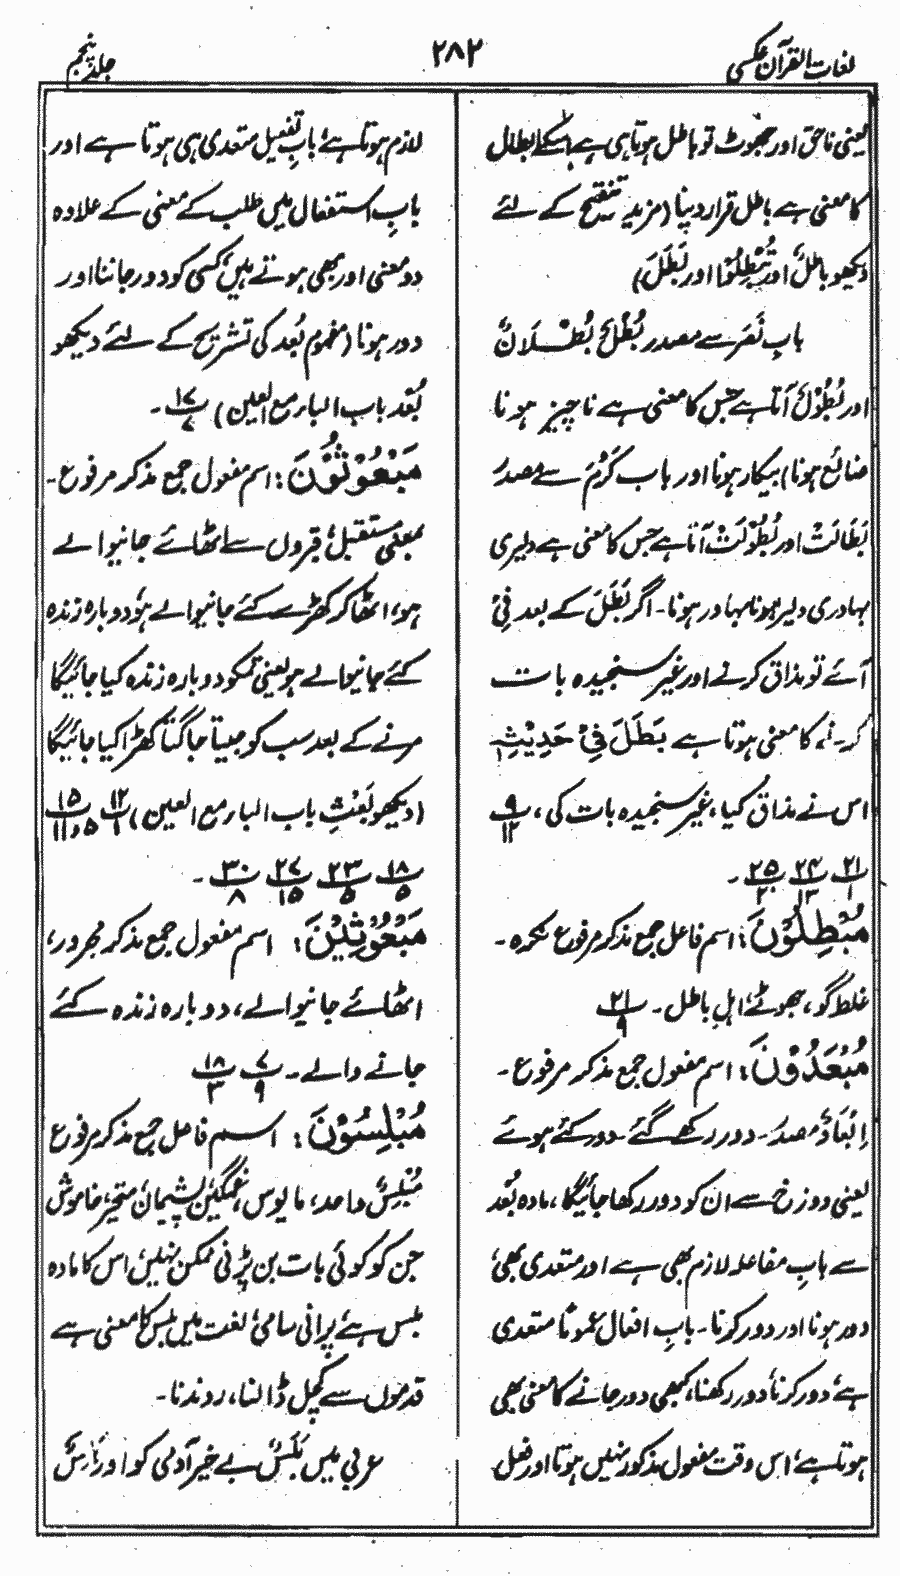 لغات القرآن عکسی
۲۸۲
جلد پنجم
یعنی ناحق اور جھوٹ تو باطل ہوتا ہی ہے اسکے ابطال
کا معنی ہے باطل قرار دینا (مزید تنقیح کے لئے
دیکھو باطلٌ اور تُبْطِلُوْا اور بَطَلَ)
باب نَصَرَ سے مصدر بُطْلٌ بُطْلَانٌ
اور بُطُوْلٌ آتا ہے جس کا معنی ہے ناچیز ہونا
ضائع ہونا) بیکار ہونا اور باب کَرُمَ سے مصدر
بَطَالَتْ اور بُطُوْلَتْ آتا ہے جس کا معنی ہے دلیری
بہادری دلیر ہونا بہادر ہونا۔ اگر بَطَلَ کے بعد فِیْ
آئے تو مذاق کرنے اور غیر سنجیدہ بات
کرنے کا معنی ہوتا ہے بَطَلَ فِیْ حَدِیْثِہٖ
اس نے مذاق کیا، غیر سنجیدہ بات کی، ۹/۱۲
۲۱/۱ ۲۴/۱۳ ۲۵/۲۰ ۔
مُبْطِلُوْنَ: اسم فاعل جمع مذکر مرفوع نکرہ۔
غلط گو، جھوٹے، اہلِ باطل۔ ۲۱/۹
مُبْعَدُوْنَ: اسم مفعول جمع مذکر مرفوع۔
اِبْعَادٌ مصدر۔ دور رکھے گئے۔ دور کئے ہوئے
یعنی دوزخ سے ان کو دور رکھا جائیگا، مادہ بُعْد
سے باب مفاعلہ لازم بھی ہے اور متعدی بھی،
دور ہونا اور دور کرنا۔ باب افعال عموماً متعدی
ہے، دور کرنا، دور رکھنا، کبھی دور جانے کا معنی بھی
ہوتا ہے، اس وقت مفعول مذکور نہیں ہوتا اور فعل
لازم ہوتا ہے، باب تفعیل متعدی ہی ہوتا ہے اور
باب استفعال میں طلب کے معنی کے علاوہ
دو معنی اور بھی ہوتے ہیں، کسی کو دور جاننا اور
دور ہونا (مفہوم بُعد کی تشریح کے لئے دیکھو
بُعْد باب الباء مع العین) ۱۷/۷ ۔
مَبْعُوْثُوْنَ: اسم مفعول جمع مذکر مرفوع۔
بمعنی مستقبل، قبروں سے اٹھائے جانیوالے
ہو، اٹھا کر کھڑے کئے جانیوالے ہو، دوبارہ زندہ
کئے جانیوالے ہو یعنی تمکو دوبارہ زندہ کیا جائیگا
مرنے کے بعد سب کو جیتا جاگتا کھڑا کیا جائیگا
(دیکھو بَعْثِ باب الباء مع العین) ۱۲/۱ ۱۵/۵و۱۱
۱۸/۵ ۲۳/۵ ۲۷/۱۵ ۳۰/۸ ۔
مَبْعُوْثِیْنَ: اسم مفعول جمع مذکر مجرور،
اٹھائے جانیوالے، دوبارہ زندہ کئے
جانے والے۔ ۷/۹ ۱۸/۳
مُبْلِسُوْنَ: اسم فاعل جمع مذکر مرفوع
مُبْلِسٌ واحد، مایوس، غمگین، پشیمان، متحیر، خاموش
جن کو کوئی بات بن پڑنی ممکن نہیں، اس کا مادہ
بلس ہے، پرانی سامی لغت میں بلس کا معنی ہے
قدموں سے کچل ڈالنا، روندنا۔
عربی میں بَلَسٌ بے خیر آدمی کو اور